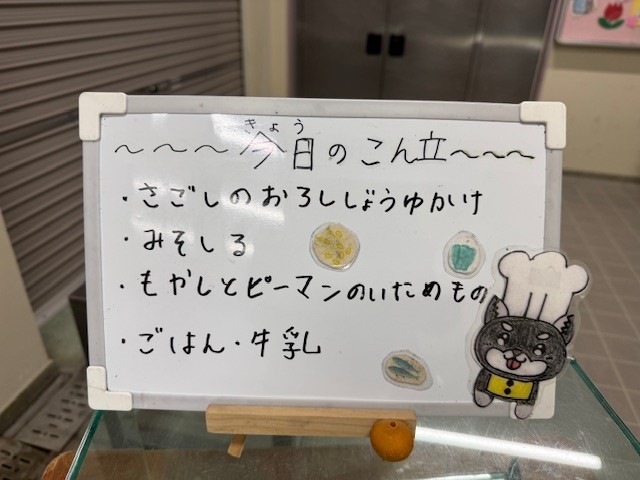 きょう
～～～今日のこん立～～～
・さごしのおろししょうゆかけ
・みそしる
・もやしとピーマンのいためもの
・ごはん・牛乳